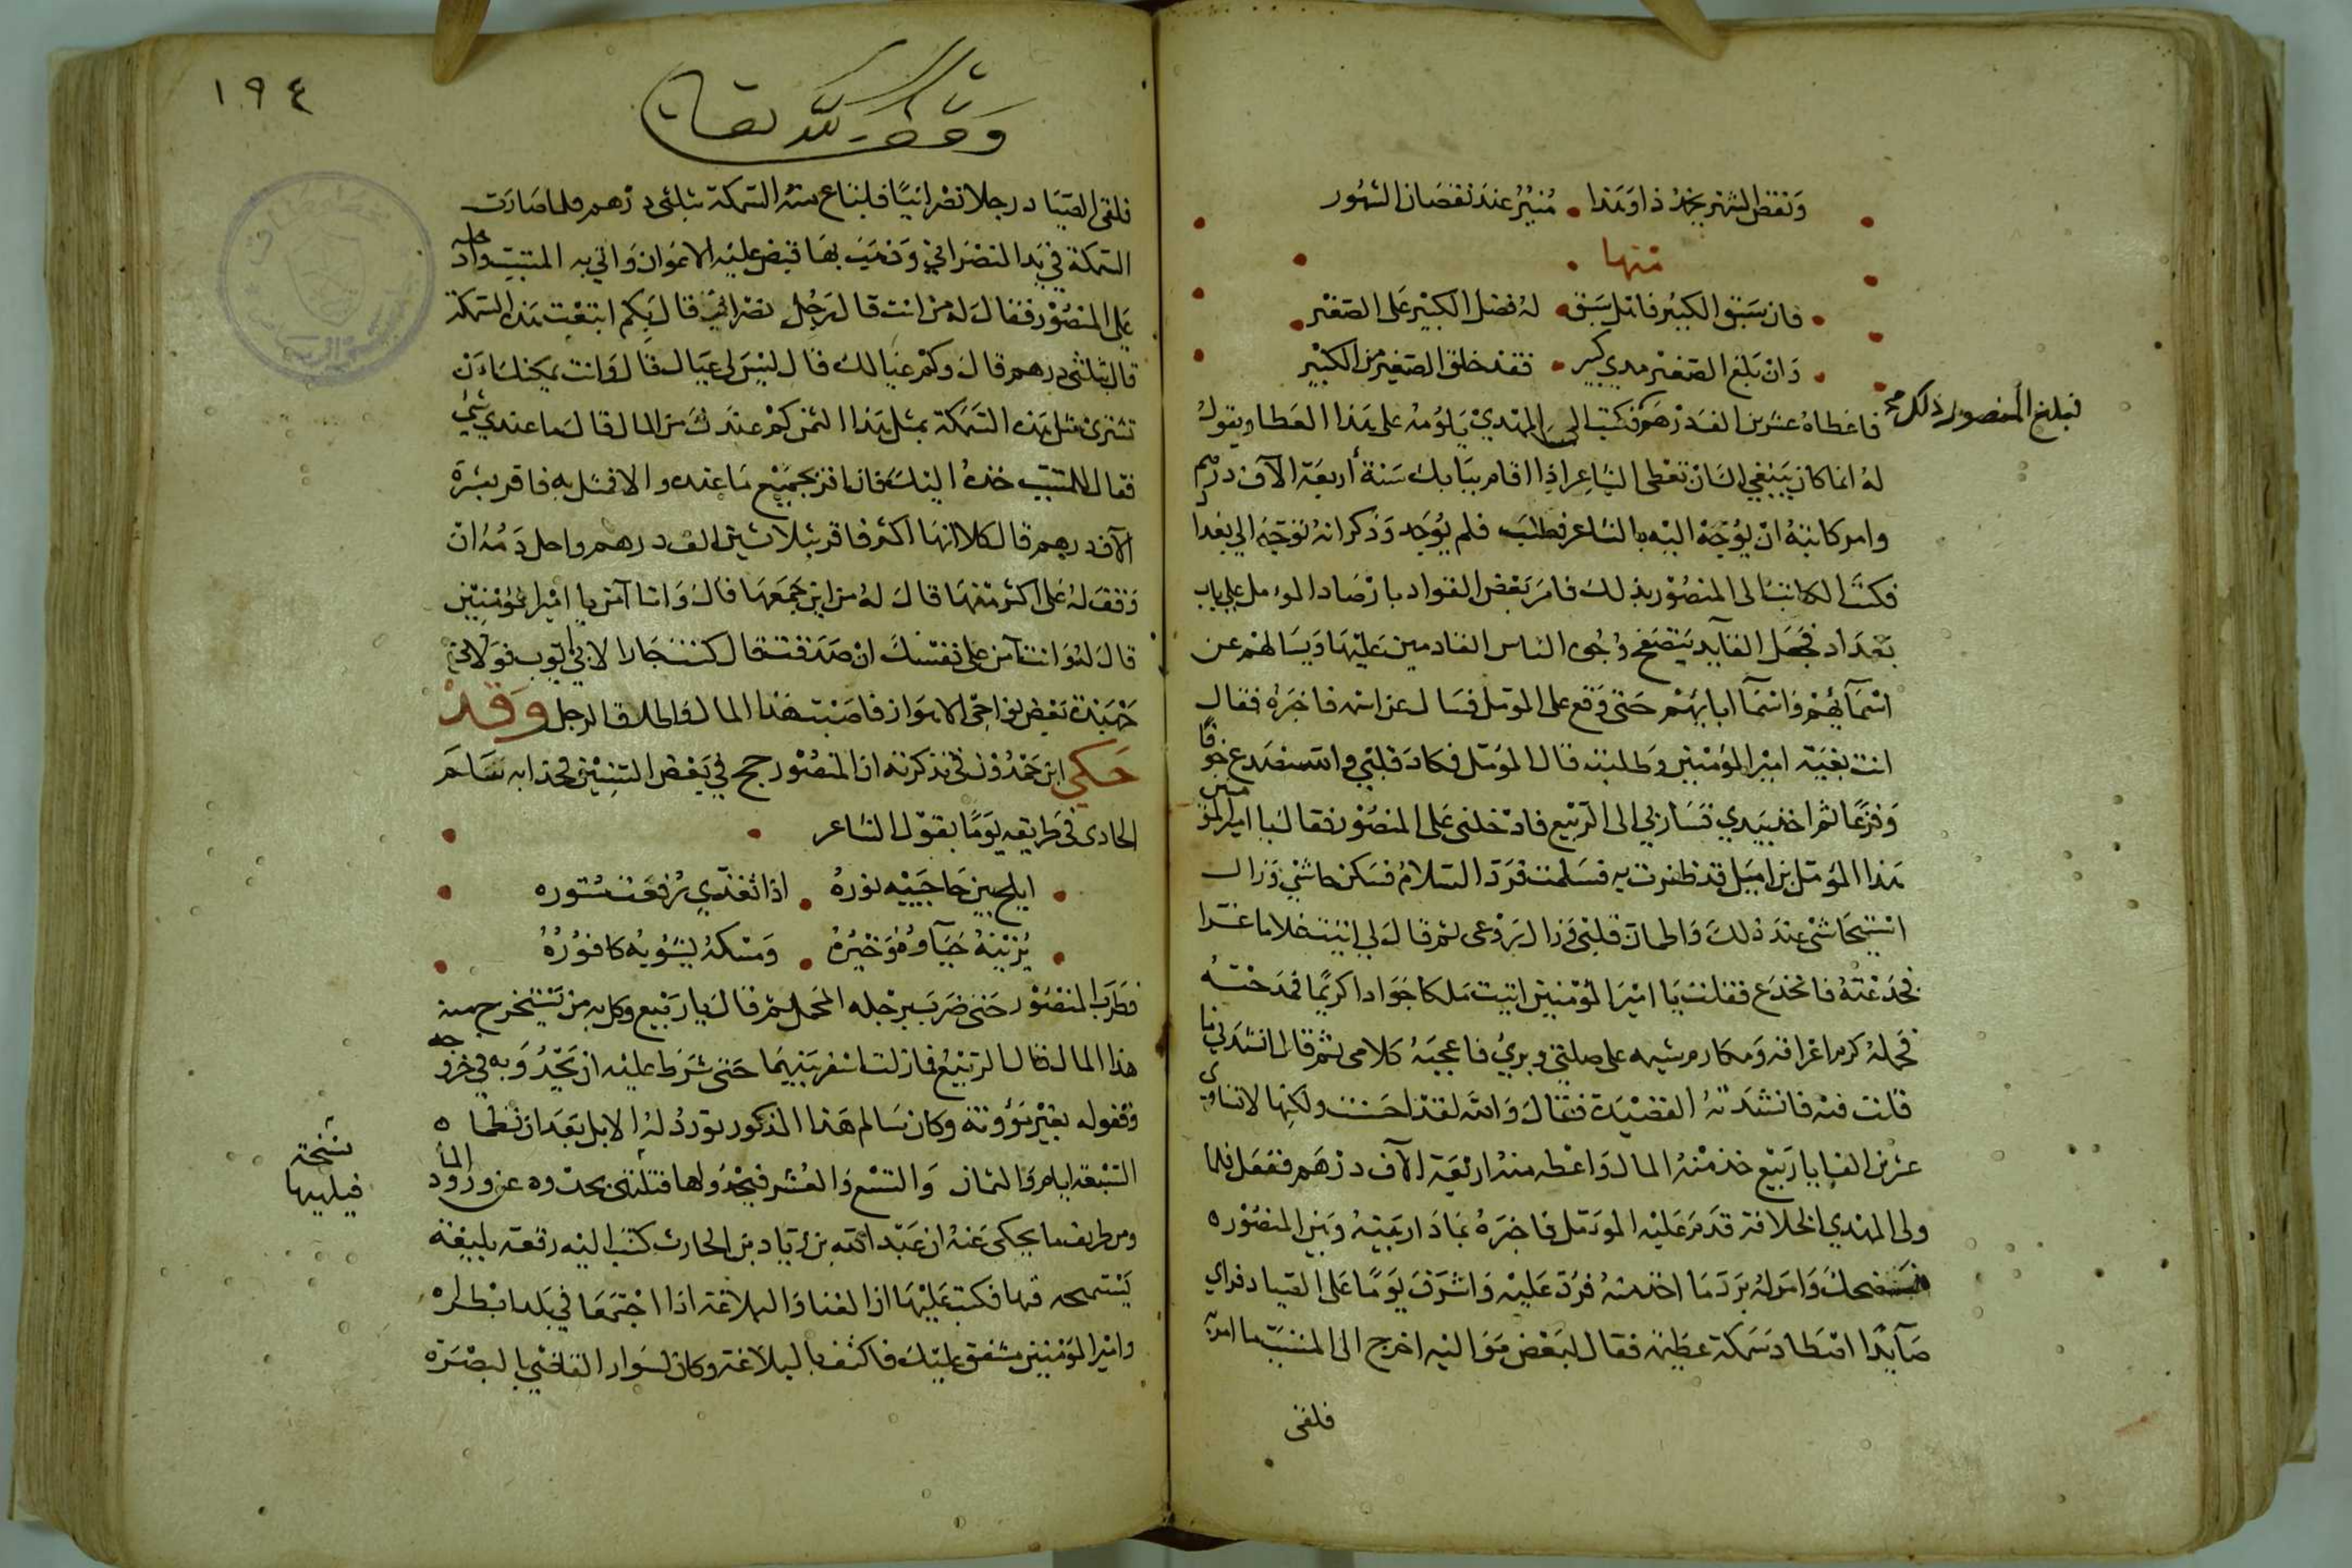 ونقض الشهر يخمد ذا وهذا منير عند نقصان الشهور
منها
فان سبق الكبير فاهل سبق له فضل الكبير على الصغير
وان بلغ الصغير مدي كبير فقد خلق الصغير من الكبير
فبلغ المنصور ذلك صح
فاعطاه عشرين الف درهم فكتب الى المهدي يلومه على هذا العطا ويقول
له انما كان ينبغي لك ان تعطى الشاعر اذا اقام ببابك سنة أربعة الآف درهم
وامر كاتبه ان يوجه اليه بالشاعر فطلب فلم يوجد وذكر انه توجه الي بغداد
فكتب الكاتب الى المنصور بذلك فامر بعض القواد بارصاد المومل على باب
بغداد فجعل القايد يتصفح وجوه الناس القادمين عليها ويسالهم عن
اسمآئهم واسمآ ابابهم حتى وقع على المومل فسال عن اسمه فاخبره فقال
انت بغية امير المؤمنين وطلبته قال المومل فكاد قلبي والله ينصدع خوفا
وفزعا ثم اخذ بيدي فسار بي الى الربيع فادخلني على المنصور فقال يا امير المؤمنين
هذا المومل بن اميل قد ظفرت به فسلمت فرد السلام فسكن جاشي وزال
استيحاشى عند ذلك واطمان قلبي وزال روعى ثم قال لي اتيت غلاما غرا
فخدعته فانخدع فقلت يا امير المؤمنين اتيت ملكا جوادا كريما فمدحته
فحمله كرم اعراقه ومكارم شيمه على صلتي وبري فاعجبه كلامى ثم قال انشدني ما
قلت فيه فانشدته القصيدة فقال والله لقد احسنت ولكنها لا تساوي
عشرين الفا يا ربيع خذ منه المال واعطه منه اربعة الآف درهم ففعل فلما
ولى المهدي الخلافة قدم عليه الموئمل فاخبره بما دار بينه وبين المنصور
فضحك وامر له برد ما اخذ منه فرد عليه واشرف يوما على الصياد فراي
صآيدا اصطاد سمكة عظيمة فقال لبعض مواليه اخرج الى المسيب ما امره
فلقى
١٩٤
وقف لله تعالى
فلقى الصياد رجلا نصرانيا فابتاع منه السمكة بثلثي درهم فلما صارت
السمكة في يد النصراني وذهب بها قبض عليه الاعوان واتي به المسيب وادخله
على المنصور فقال له من انت قال رجل نصراني قال بكم ابتعت هذه السمكة
قال بثلثي درهم قال وكم عيالك قال ليس لي عيال قال وانت يمكنك ان
تشترى مثل هذه السمكة بمثل هذا الثمن كم عندك من المال قال ما عندي شي
فقال للمسيب خذه اليك فان اقر بجميع ما عنده والا فمثل به فاقر بعشرة
الآف درهم قال كلا انها اكثر فاقر بثلاثين الف درهم واحل دمه ان
وقف له على اكثر منها قال له من اين جمعها قال وانا آمن يا امير المؤمنين
قال له وانت آمن على نفسك ان صدقت قال كنت جارا لابي ايوب فولاني
جهبذة بعض نواحي الاهواز فاصبت هذا المال واطلاق الرجل وقد
حكي ابن حمدون في تذكرته ان المنصور حج في بعض السنين فحدا به سالم
الحادى في طريقه يوما بقول الشاعر
ابلج بين حاجبيه نوره اذا تغدي رفعت ستوره
يزينه حيآوه وخيره ومسكه يشوبه كافوره
فطرب المنصور حتى ضرب برجله المحمل ثم قال يا ربيع وكل به من يستخرج منه
هذا المال قال الربيع فما زلت اسفر بينهما حتى شرط عليه ان يحدو به في خروجه
وقفوله بغير مؤونة وكان سالم هذا المذكور تورد له الابل بعد ان تظما
السبعة ايام والثمان والتسع والعشر فيحدو لها فتلتهي بحدوه عن ورود الما
نسخة فيلهيها
ومن طريف ما يحكى عنه ان عبد الله بن زياد بن الحارث كتب اليه رقعة بليغة
يستمحه فيها فكتب عليها ان الغنا والبلاغة اذا اجتمعا في بلد ابطراه
وامير المؤمنين مشفق عليك فاكتف بالبلاغة وكان لسوار القاضي بالبصرة